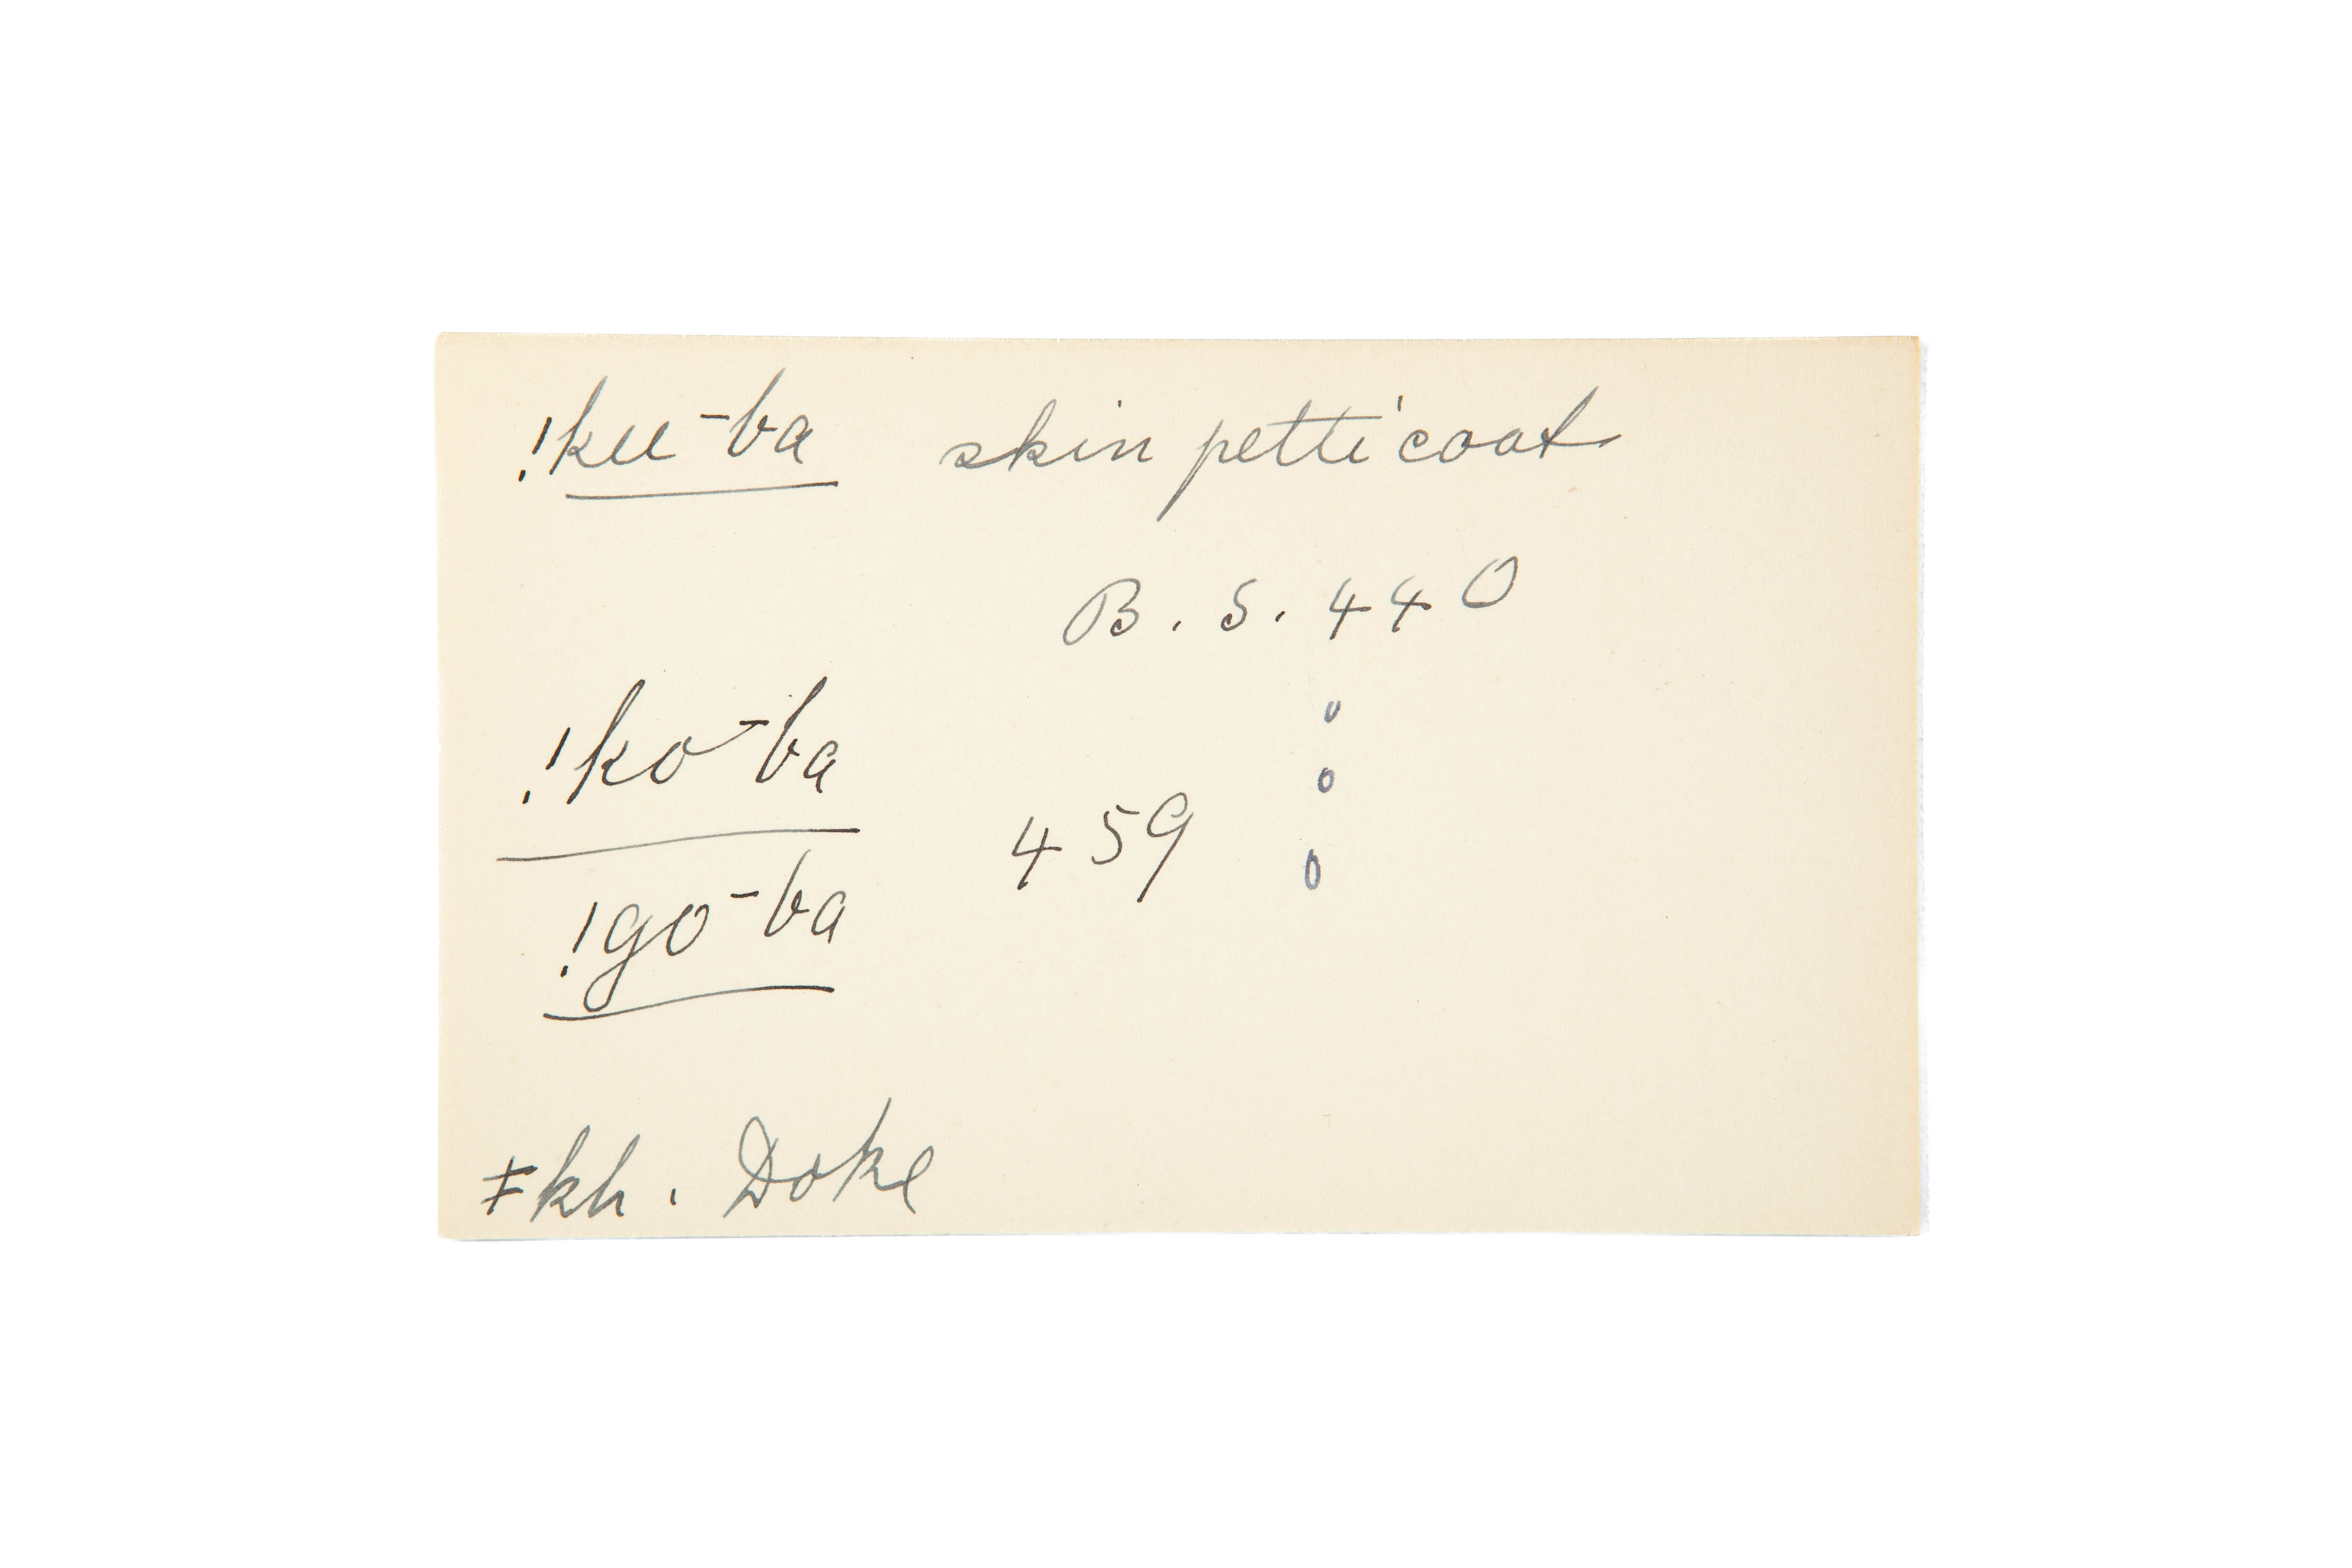 !ku-ba skin petticoat
B. S. 440
!ko-ba
459
!go-ba
ǂkh. Doke